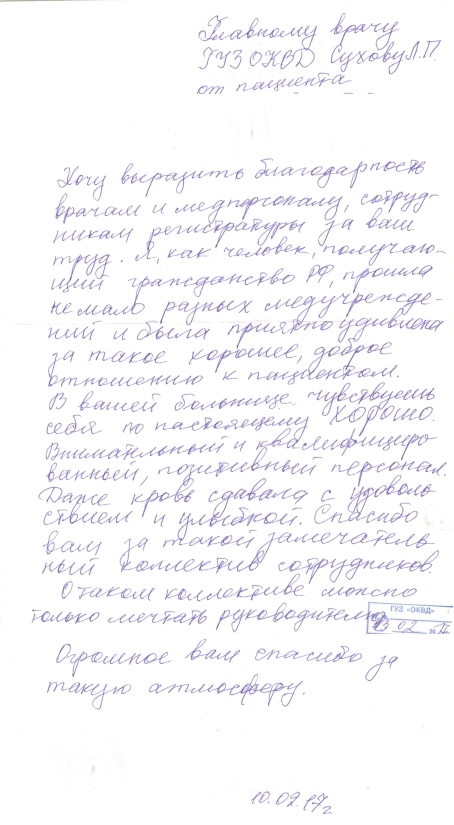 Главному врачу
ГУЗ ОКВД Сухову Л.П.
от пациента
Хочу выразить благодарность
врачам и медперсоналу, сотруд-
никам регистратуры за ваш
труд. Я, как человек, получаю-
щий гражданство РФ, прошла
немало разных медучрежде-
ний и была приятно удивлена
за такое хорошее, доброе
отношению к пациентом.
В вашей больнице чувствуешь
себя по настоящему ХОРОШО.
Внимательный и квалифициро-
ванный, позитивный персонал.
Даже кровь сдавала с удоволь
ствием и улыбкой. Спасибо
вам за такой замечатель
ный коллектив сотрудников.
О таком коллективе можно
только мечтать руководителю
ГУЗ «ОКВД»
02 20
Огромное вам спасибо за
такую атмосферу.
10.02.17г